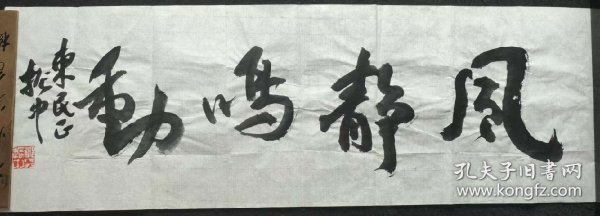 風靜鳴動
東民正
孔夫子旧书网
www.kongfz.com